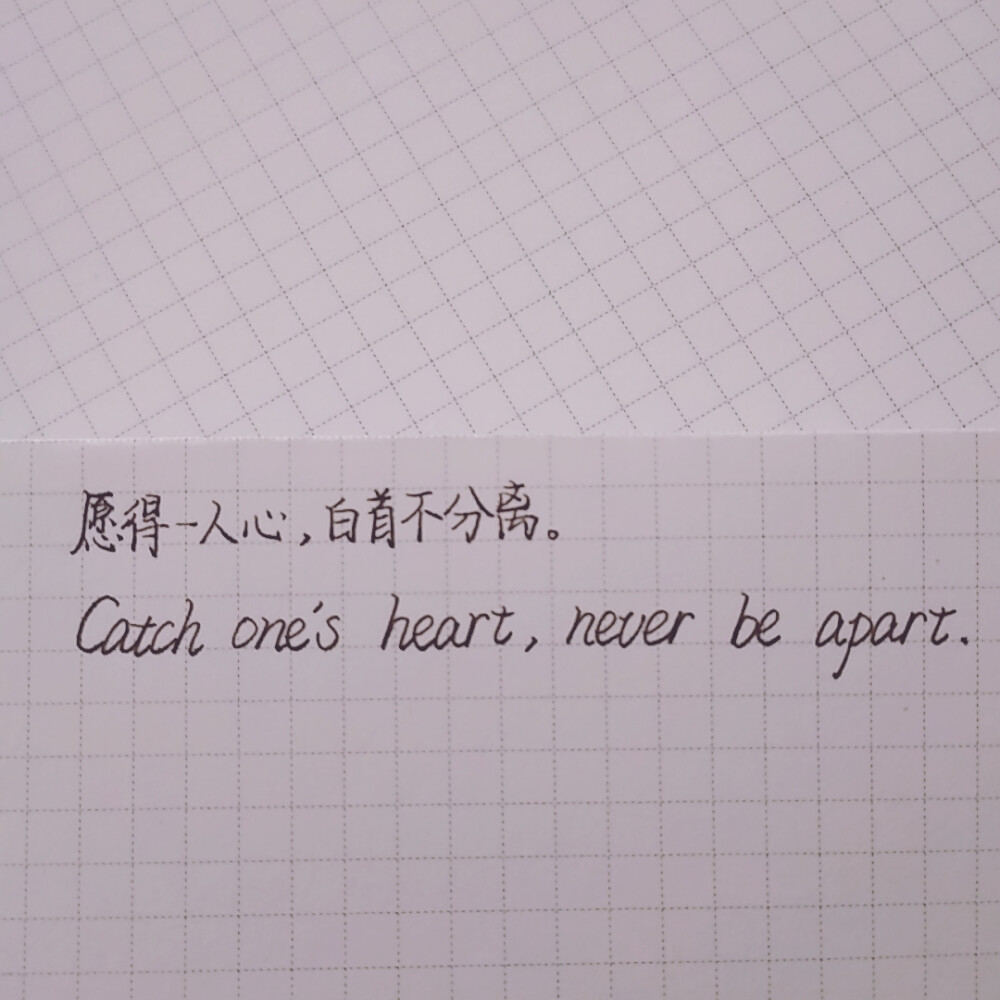 愿得一人心，白首不分离。
Catch one's heart, never be apart.